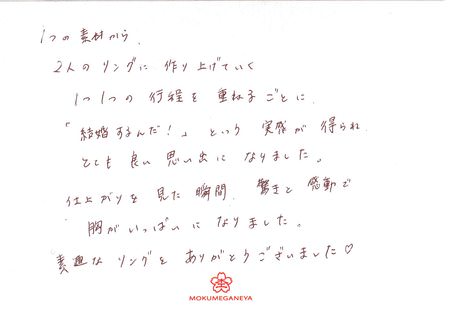 1つの素材から、
2人のリングに作り上げていく
1つ1つの行程を重ねるごとに
「結婚するんだ!」という実感が得られ
とても良い思い出になりました。
仕上がりを見た瞬間、驚きと感動で
胸がいっぱいになりました。
素適なリングをありがとうございました♡
MOKUMEGANEYA